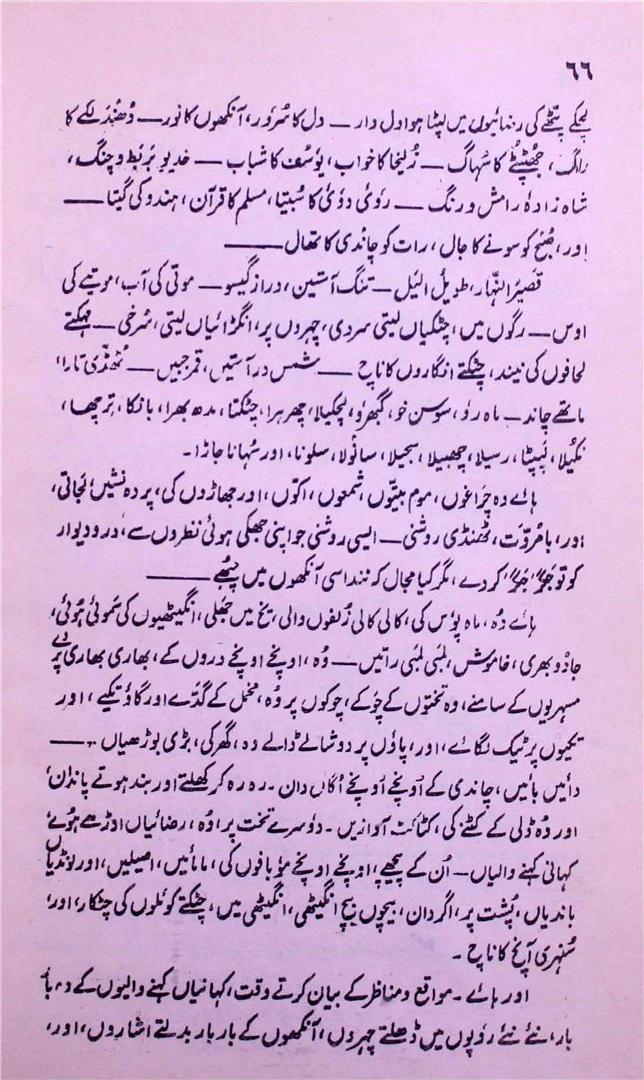 ٦٦
لچکے پٹھے کی رضائیوں میں لپٹا ہوا دل دار — دل کا سُرور، آنکھوں کا نور — دُھندلکے کا
راگ، جھٹپٹے کا سُہاگ — زُلیخا کا خواب، یوسُف کا شباب — خدیوِ بربط و چنگ،
شاہ زادۂ رامش و رنگ — روئی دوئی کا سُبیتا، مسلم کا قرآن، ہندو کی گیتا —
اور، صُبح کو سونے کا جال، رات کو چاندی کا تھال —
قصیرُ النہار، طویلُ الیَل — تنگ آستین، دراز گیسو — موتی کی آب، موتیے کی
اوس — رگوں میں، چٹکیاں لیتی سردی، چہروں پر، انگڑائیاں لیتی، سُرخی — مہکتے
لحافوں کی نیند، چٹکتے انگاروں کا ناچ — شمس در آستیں، قمر جبیں — ٹھڈّی تارا،
ماتھے چاند — ماہ رو، سوسن خو، گبھرو، لچکیلا، چھرہرا، چٹکتا، مدھ بھرا، بانکا، ترچھا،
نکیلا، رسیلا، چھبیلا، سجیلا، سانولا، سلونا، اور سُہانا جاڑا۔
ہائے وہ چراغوں، موم بتیوں، شمعوں، اکوّں، اور جھاڑوں کی، پردہ نشیں، لجاتی،
اور، بامُروّت، ٹھنڈی روشنی — ایسی روشنی جو اپنی جھکی ہوئی نظروں سے، درو دیوار
کو تو جگر جگر کر دے، مگر کیا مجال کہ تنداسی آنکھوں میں چبھے —
ہائے وُہ، ماہ پُوس کی، کالی کالی زُلفوں والی، یخ میں جَھلی، انگیٹھیوں کی سَموئی ہُوئی،
جادُو بھری، خاموش، لمبی لمبی راتیں — وُہ، اونچے اونچے دروں کے، بھاری بھاری پردے
مسہریوں کے سامنے، وہ تختوں کے چوکے، چوکوں پر وُہ، مخمل کے گدّے اور گاؤ تکیے، اور
تکیوں پر ٹیک لگائے، اور، پاؤں پر دوشالے ڈالے وہ، گھر کی، بڑی بوڑھیاں —
دائیں بائیں، چاندی کے اُونچے اُونچے اُگال دان۔ رہ رہ کر کھلتے اور بند ہوتے پاندان،
اور وُہ ڈلی کے کٹنے کی، کٹاکٹ آوازیں۔ دوسرے تخت پر، وُہ، رضائیاں اوڑھے ہُوئے
کہانی کہنے والیاں — اُن کے پیچھے، اونچے اونچے موبافوں کی، مامائیں، اصیلیں، اور لونڈیاں
باندیاں، پُشت پر، اگردان، بیچوں بیچ انگیٹھی، انگیٹھی میں، چٹکتے کوئلوں کی چٹکار، اور،
سُنہری آنچ کا ناچ۔
اور ہائے۔ مواقع و مناظر کے بیان کرتے وقت، کہانیاں کہنے والیوں کے وہ، با
بار، نئے نئے رُوپوں میں ڈھلتے چہروں، آنکھوں کے بار بار بدلتے اشاروں، اور،